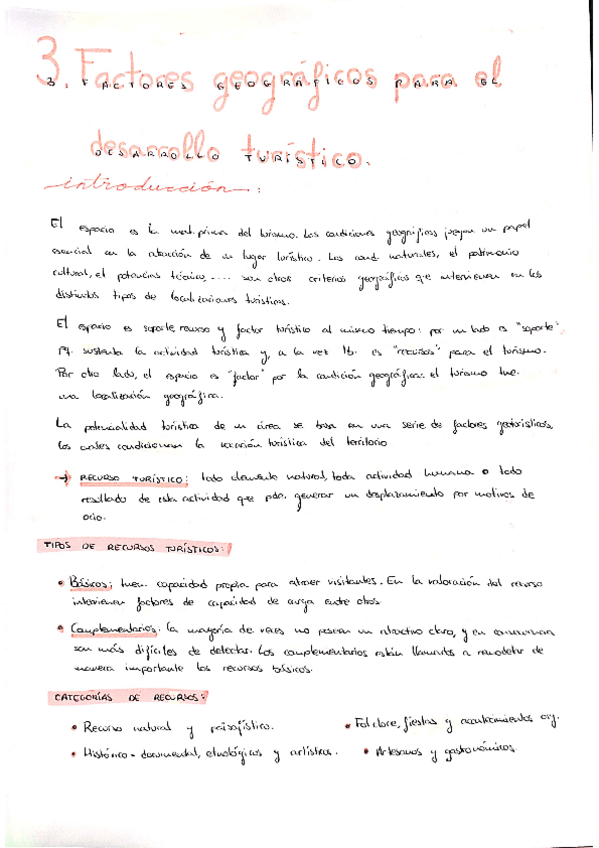 3. Factores geográficos para el
desarrollo turístico.
introducción:
El espacio es la mat. prima del turismo. Las condiciones geográficas juegan un papel
esencial en la atracción de un lugar turístico. Las cond. naturales, el patrimonio
cultural, el potencias técnico, .... son otros criterios geográficos que intervienen en los
distintos tipos de localizaciones turísticas.
El espacio es soporte, recurso y factor turístico al mismo tiempo: por un lado es "soporte",
pq. sustenta la actividad turística y, a la vez tb. es "recurso" para el turismo.
Por otro lado, el espacio es "factor" por la condición geográfica: el turismo tne.
una localización geográfica.
La potencialidad turística de un área se basa en una serie de factores geoturísticos,
los cuales condicionan la vocación turística del territorio.
→ RECURSO TURÍSTICO: todo elemento natural, toda actividad humana o todo
resultado de esta actividad que pda. generar un desplazamiento por motivos de
ocio.
TIPOS DE RECURSOS TURÍSTICOS:
• Básicos: tnen. capacidad propia para atraer visitantes. En la valoración del recurso
intervienen factores de capacidad de carga entre otros
• Complementarios: la mayoría de veces no poseen un atractivo claro, y en
son más difíciles de detectar. Los complementarios están llamados a de
manera importante los recursos básicos.
CATEGORÍAS DE RECURSOS:
• Recurso natural y paisajístico.
• Folclore, fiestas y acontecimientos org.
• Histórico-documental, etnológicos y artísticos.
• Artesanos y gastronómicos.